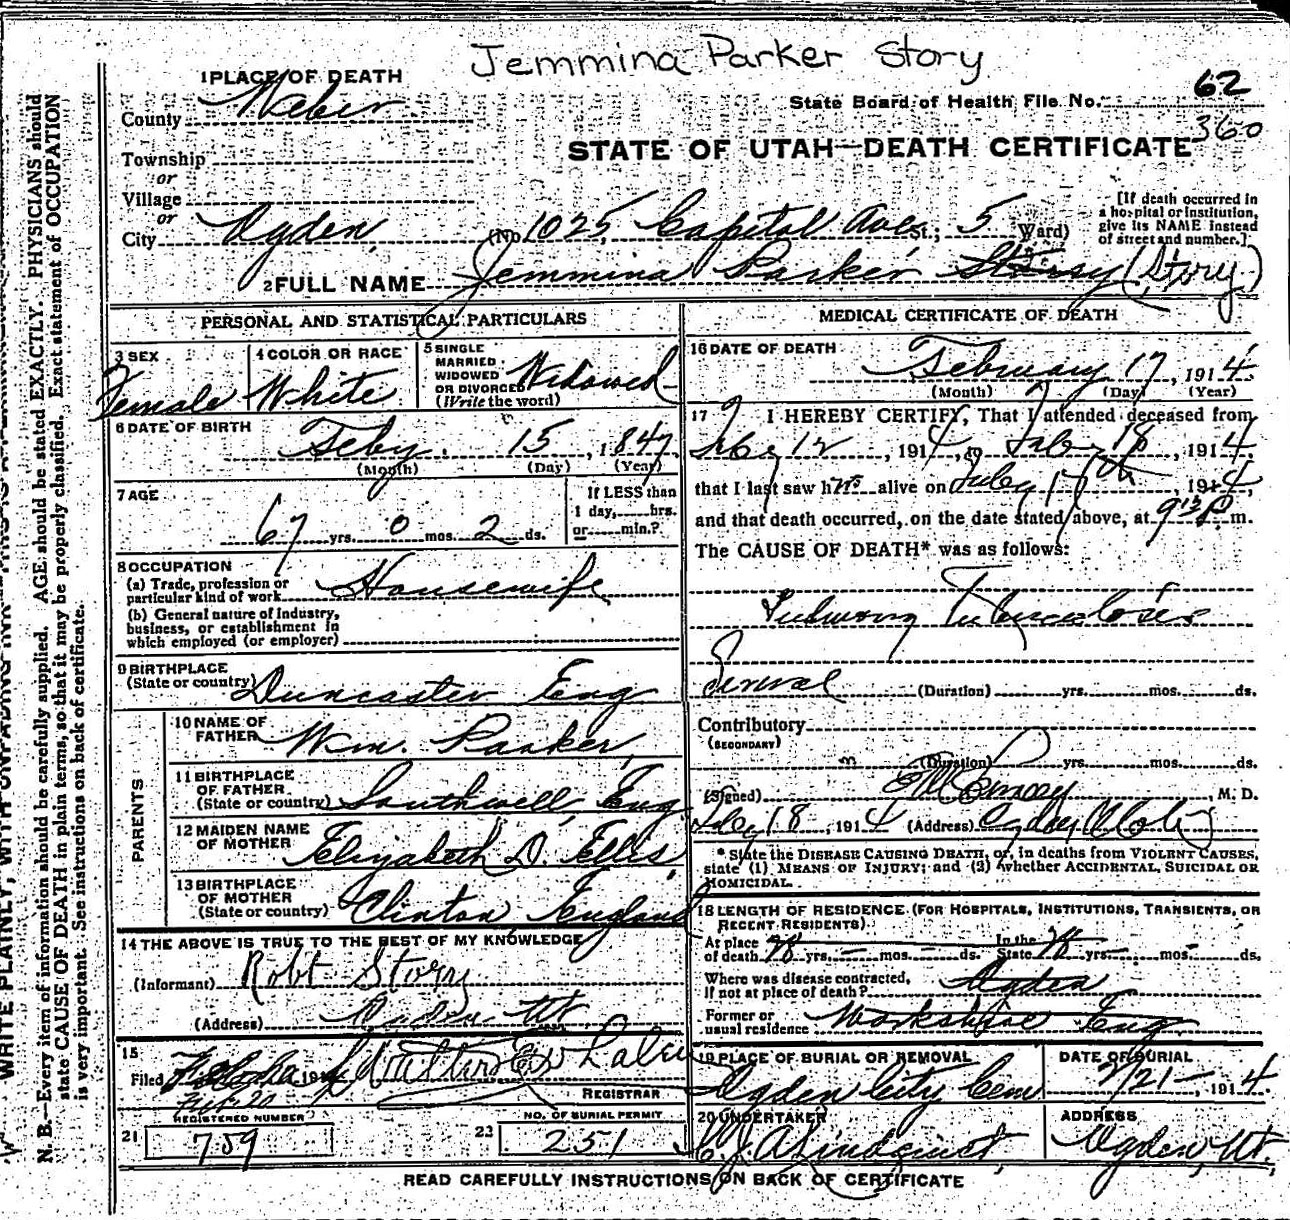 Jemmina Parker Story
1 PLACE OF DEATH
County Weber
State Board of Health File No. 62
360
STATE OF UTAH—DEATH CERTIFICATE
Township
or
Village
or
City Ogden (No. 1025 Capitol Ave St.; 5 Ward)
[If death occurred in
a hospital or institution,
give its NAME instead
of street and number.]
2 FULL NAME Jemmina Parker (Story)
PERSONAL AND STATISTICAL PARTICULARS
3 SEX Female
4 COLOR OR RACE White
5 SINGLE
MARRIED
WIDOWED
OR DIVORCED
(Write the word) Widowed
6 DATE OF BIRTH
Feby. 15, 1847
(Month) (Day) (Year)
7 AGE
67 yrs. 0 mos. 2 ds.
If LESS than
1 day, hrs.
or min.?
8 OCCUPATION
(a) Trade, profession or
particular kind of work Housewife
(b) General nature of industry,
business, or establishment in
which employed (or employer)
9 BIRTHPLACE
(State or country) Duncaster Eng
PARENTS
10 NAME OF
FATHER Wm. Parker
11 BIRTHPLACE
OF FATHER
(State or country) Southwell, Eng
12 MAIDEN NAME
OF MOTHER Elizabeth D. Ellis
13 BIRTHPLACE
OF MOTHER
(State or country) Clinton England
14 THE ABOVE IS TRUE TO THE BEST OF MY KNOWLEDGE
(Informant) Robt Story
(Address) Ogden Ut.
15
Filed 191
Feb 20
REGISTRAR
REGISTERED NUMBER
21 759
NO. OF BURIAL PERMIT
22 251
MEDICAL CERTIFICATE OF DEATH
16 DATE OF DEATH
February 17, 1914.
(Month) (Day) (Year)
17 I HEREBY CERTIFY, That I attended deceased from
12, 1914, to Feb 18, 1914,
that I last saw h alive on Feby 17th, 1914,
and that death occurred, on the date stated above, at 9 P m.
The CAUSE OF DEATH* was as follows:
Tuberculosis
Several (Duration) yrs. mos. ds.
Contributory
(SECONDARY)
(Duration) yrs. mos. ds.
(Signed) , M. D.
Feby 18, 1914 (Address) Ogden
* State the DISEASE CAUSING DEATH, or, in deaths from VIOLENT CAUSES,
state (1) MEANS OF INJURY; and (2) whether ACCIDENTAL, SUICIDAL OR
HOMICIDAL.
18 LENGTH OF RESIDENCE (FOR HOSPITALS, INSTITUTIONS, TRANSIENTS, OR
RECENT RESIDENTS).
At place In the
of death yrs. mos. ds. State yrs. mos. ds.
Where was disease contracted,
If not at place of death? Ogden
Former or
usual residence Eng
19 PLACE OF BURIAL OR REMOVAL
Ogden City Cem
DATE OF BURIAL
2/21, 1914.
20 UNDERTAKER
Lindquist,
ADDRESS
Ogden, Ut.
READ CAREFULLY INSTRUCTIONS ON BACK OF CERTIFICATE
N. B.—Every item of information should be carefully supplied. AGE should be stated EXACTLY. PHYSICIANS should
state CAUSE OF DEATH in plain terms, so that it may be properly classified. Exact statement of OCCUPATION
is very important. See instructions on back of certificate.
WRITE PLAINLY, WITH UNFADING INK